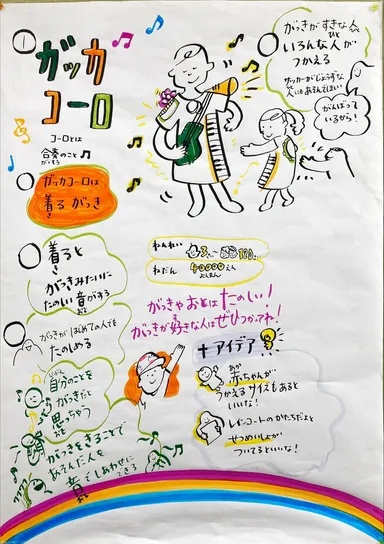 ①
ガッカ
コーロ
コーロとは
合奏のこと
がっそう
ガッカコーロは
着る がっき
き
着ると
き
がっきみたいに
たのしい音がする
おと
がっきがはじめての人でも
たのしめる
自分のことを
じぶん
がっきだと
思っちゃう
おも
がっきをきることで
あそんだ人を
音でしあわせに
おと
できる
がっきがすきな人
ひと
いろんな人が
つかえる
サッカーがじょうずな
人にもあそんでほしい
がんばって
いるから!
ねんれい
3
100
ねだん
40000えん
よんまん
がっきやおとはたのしい!
がっきが好きな人はぜひつかってね!
す
+アイデア
あか
赤ちゃんが
つかえるサイズもあると
いいな!
レインコートのかたちだよと
せつめいしょが
ついてるといいな!